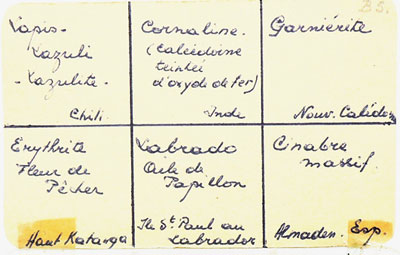 B5.
Lapis-
Lazuli
-Lazulite-
Chili
Cornaline-
(Calcédoine
teintée
d'oxyde de fer)
Inde
Garniérite
Nouv. Calédon
Erythrite
Fleur de
Pêcher
Haut Katanga
Labrado
Aile de
Papillon
Ile St Paul au
Labrador
Cinabre
massif.
Almaden. Esp.